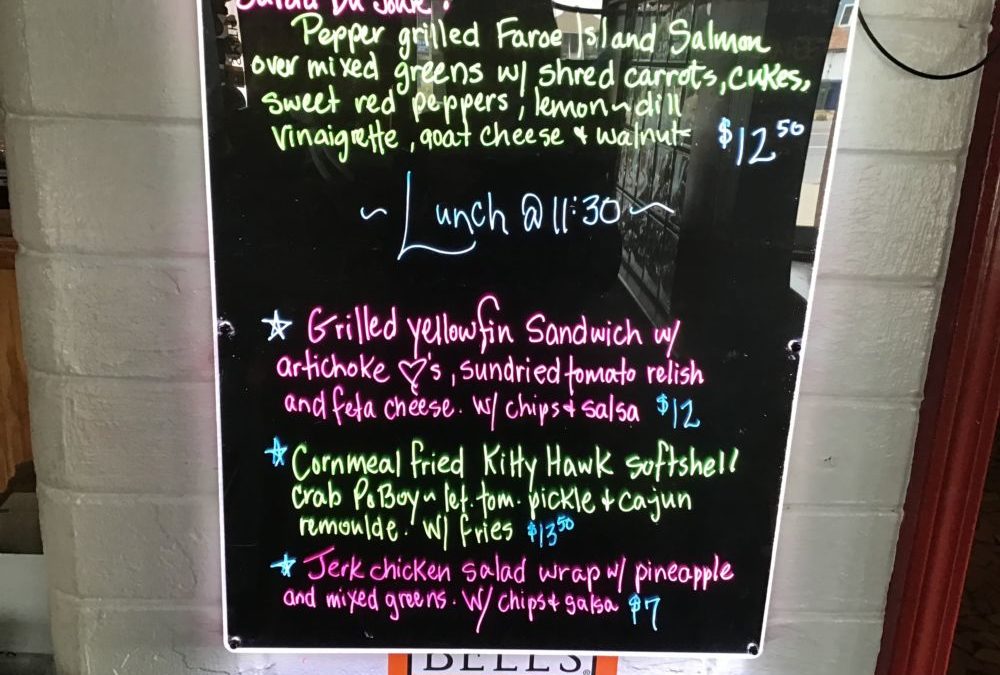 Salad Du Jour:
Pepper grilled Faroe Island Salmon
over mixed greens w/ shred carrots, cukes,
sweet red peppers, lemon~dill
vinaigrette, goat cheese & walnuts $12.50
~ Lunch @ 11:30 ~
☆ Grilled yellowfin Sandwich w/
artichoke ♡'s, sundried tomato relish
and feta cheese. w/ chips & salsa $12
☆ Cornmeal fried Kitty Hawk softshell
crab PoBoy ~ let. tom. pickle & cajun
remoulde. w/ fries $13.50
☆ Jerk chicken salad wrap w/ pineapple
and mixed greens. w/ chips & salsa $7
BELL'S